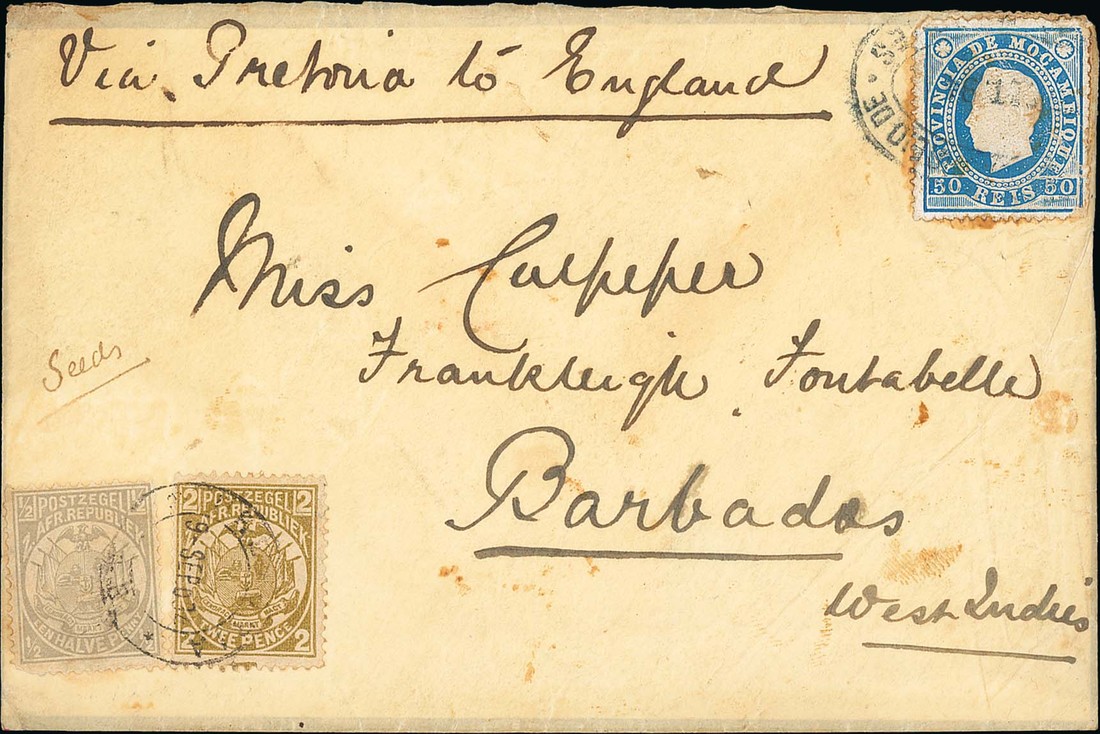 Via Pretoria to England
PROVINCIA DE MOÇAMBIQUE
50 REIS 50
Miss Culpeper
Frankleigh Fontabelle
Barbados
West Indies
Seeds
½ POSTZEGEL ½
AFR. REPUBLIEK
½ EEN HALVE
2 POSTZEGEL 2
AFR. REPUBLIEK
TWEE PENCE 2